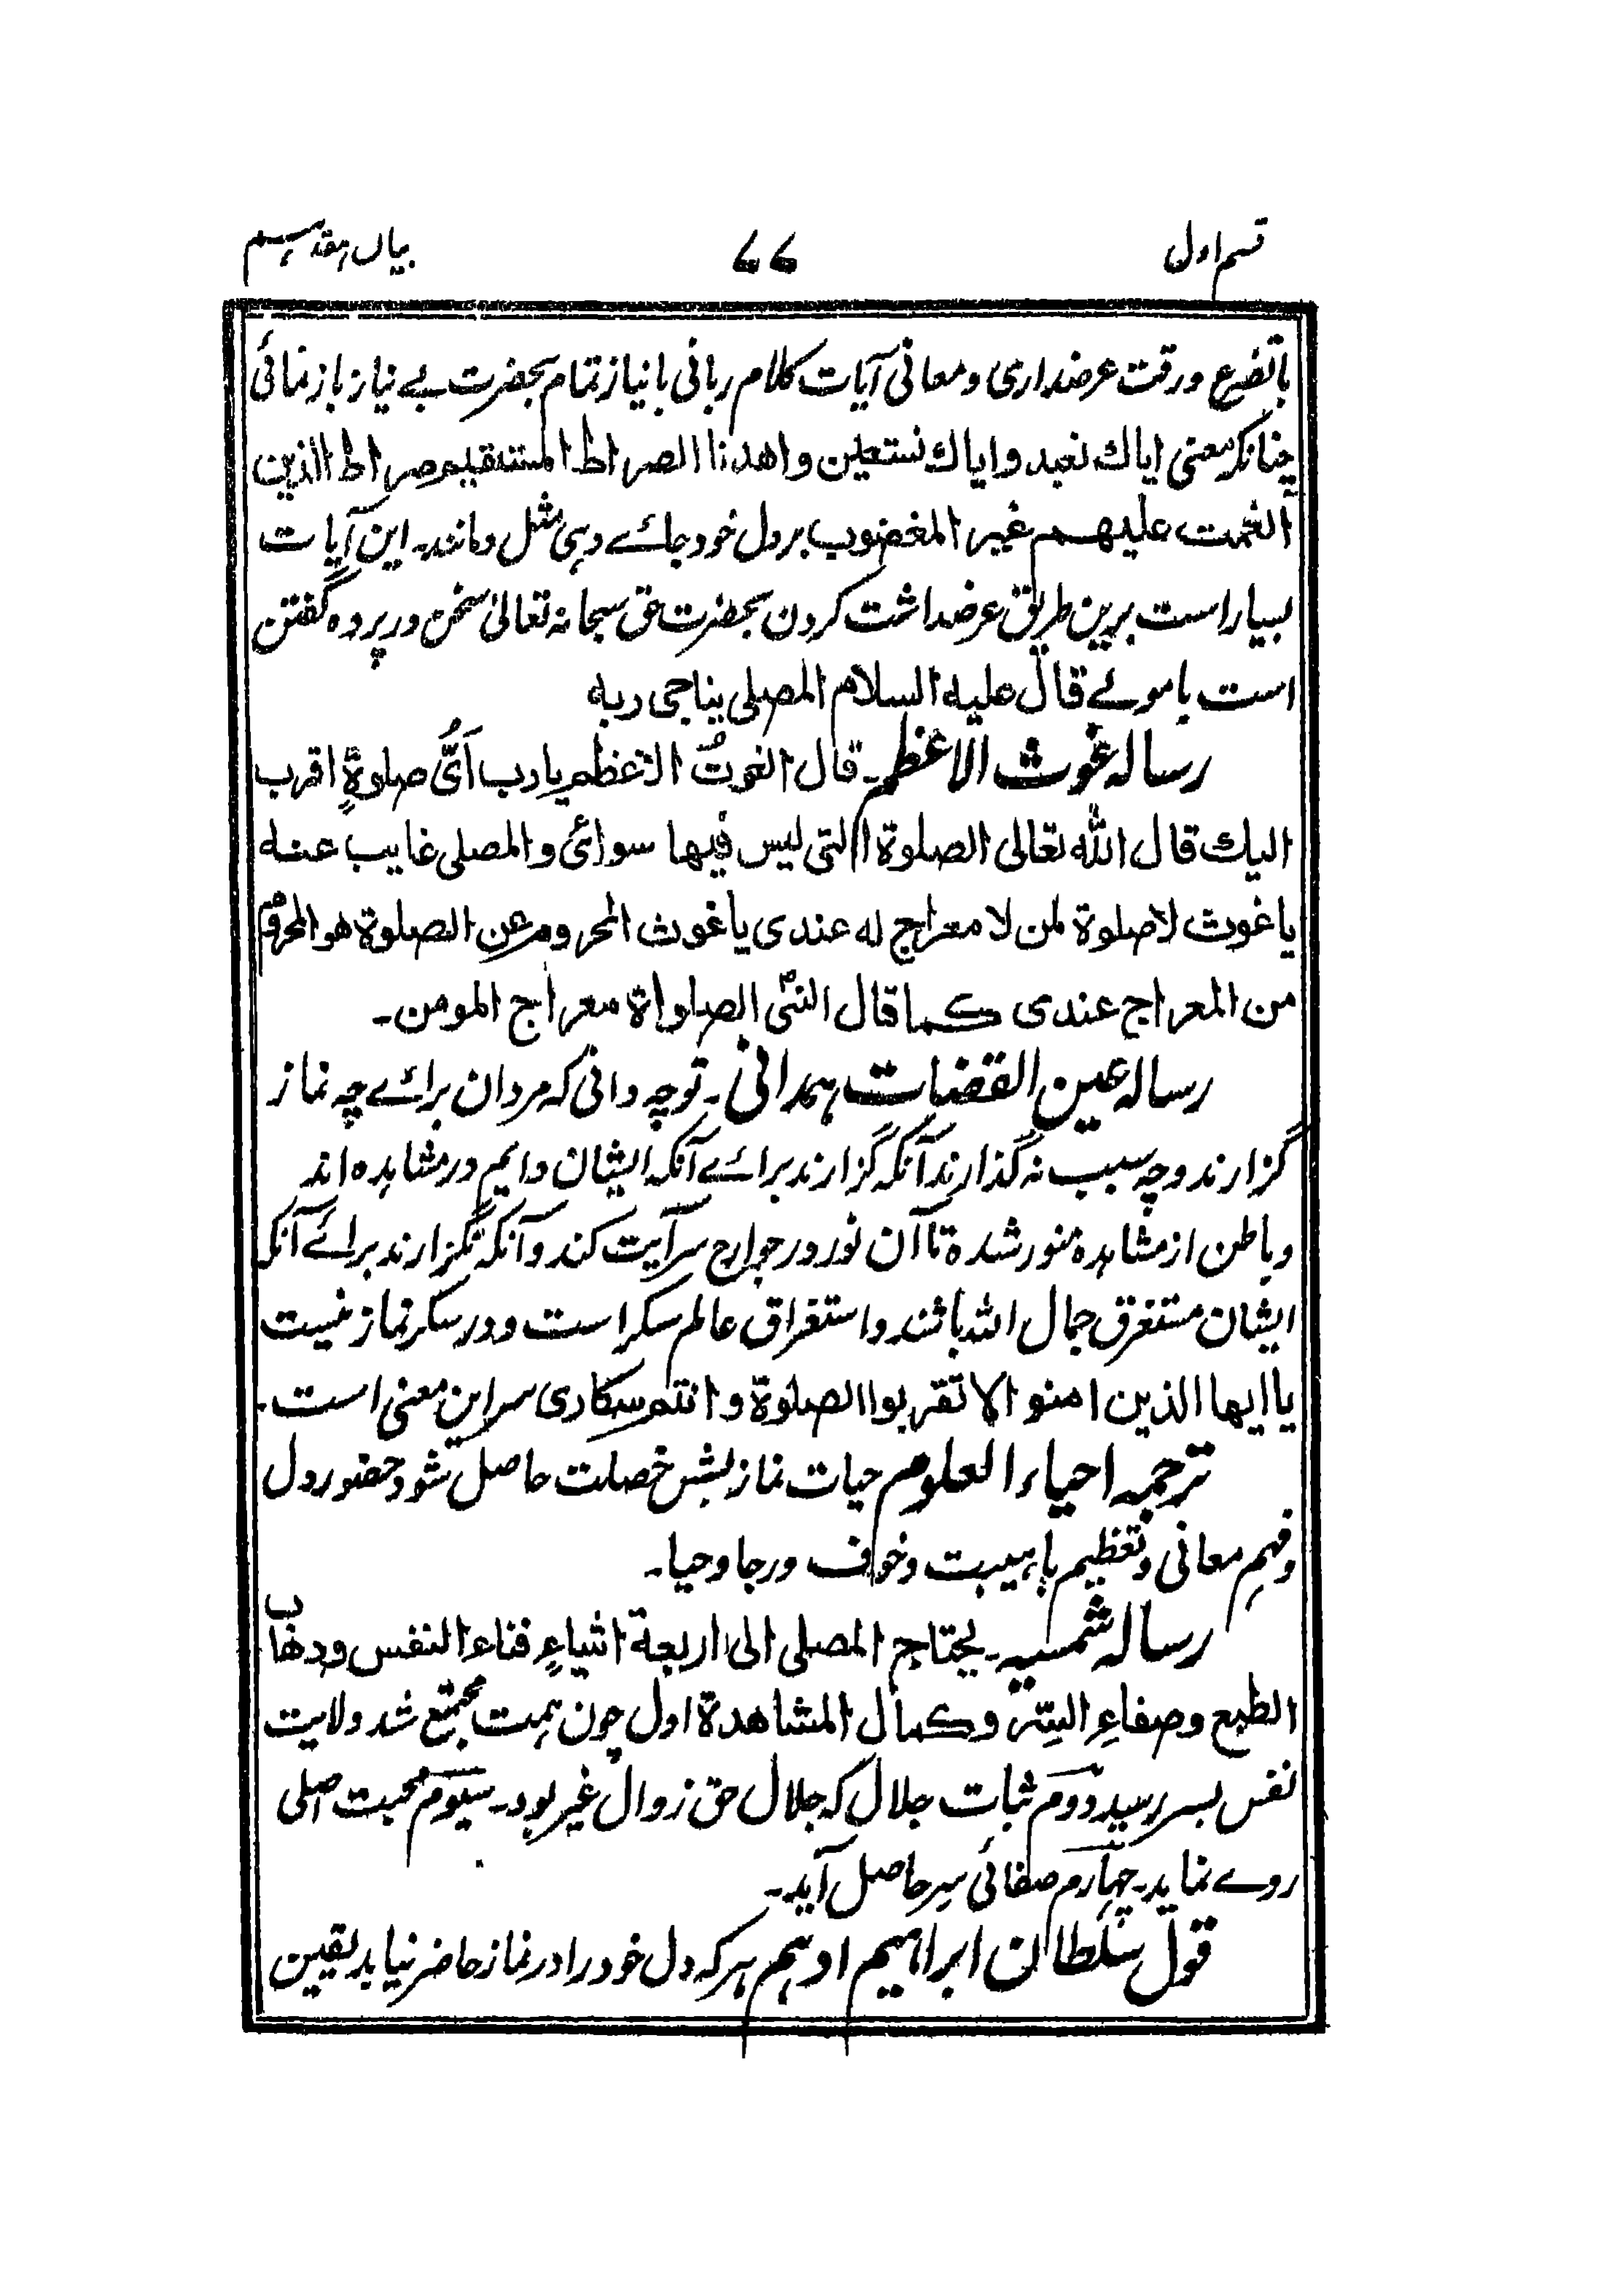 قسم اول
۷۷
بیان مقدمہ
باتضرع ورقت عرضداری ومعانی آیات کلام ربانی بانیاز تمام بحضرت بے نیاز بازنمائی
چنانکہ معنی ایاك نعبد وایاك نستعین واهدنا الصراط المستقیم صراط الذین
انعمت علیهم غیر المغضوب بردل خود جائے دہی مثل ومانند۔ این آیات
بسیار است برین طریق عرضداشت کردن بحضرت حق سبحانہ تعالیٰ سخن در پردہ گفتن
است باموے قال علیه السلام المصلی یناجی ربه
رسالہ غوث الاعظم۔ قال الغوث الاعظم یارب اَیُّ صلوةٍ اقرب
الیك قال الله تعالی الصلوة التی لیس فیها سوائی والمصلی غایب عنه
یاغوث لاصلوة لمن لا معراج له عندی یاغوث المحروم عن الصلوة هو المحروم
من المعراج عندی كما قال النبیؐ الصلواة معراج المومن۔
رسالہ عین القضات ہمدانی۔ توچہ دانی کہ مردان برائے چہ نماز
گزارند وچہ سبب نہ گذارند آنکہ گزارند برائے آنکہ ایشان دایم در مشاہدہ اند
وباطن از مشاہدہ منور شدہ تا آن نور در جوارح سرآیت کند وآنکہ نگزارند برائے آنکہ
ایشان مستغرق جمال اللہ باشند واستغراق عالم سکر است ودر سکر نماز نیست
یاایها الذین امنو الاتقربوا الصلوة وانتم سكاری سر این معنی است۔
ترجمہ احیاء العلوم حیات نماز بشش خصلت حاصل شود حضور دل
وفہمِ معانی وتعظیم باہیبت وخوف ورجا وحیا۔
رسالہ شمسیہ۔ یحتاج المصلی الی اربعة اشیاءٍ فناء النفس وذهاب
الطبع وصفاءِ السِّر وكمال المشاهدة اول چون ہمت مجتمع شد ولایت
نفس بسر رسید دوم ثبات جلال کہ جلال حق زوال غیر بود۔ سیوم محبت اصلی
روے نماید۔ چہارم صفائی سِر حاصل آید۔
قول سلطان ابراہیم ادہم ہر کہ دل خود را در نماز حاضر نیابد یقین